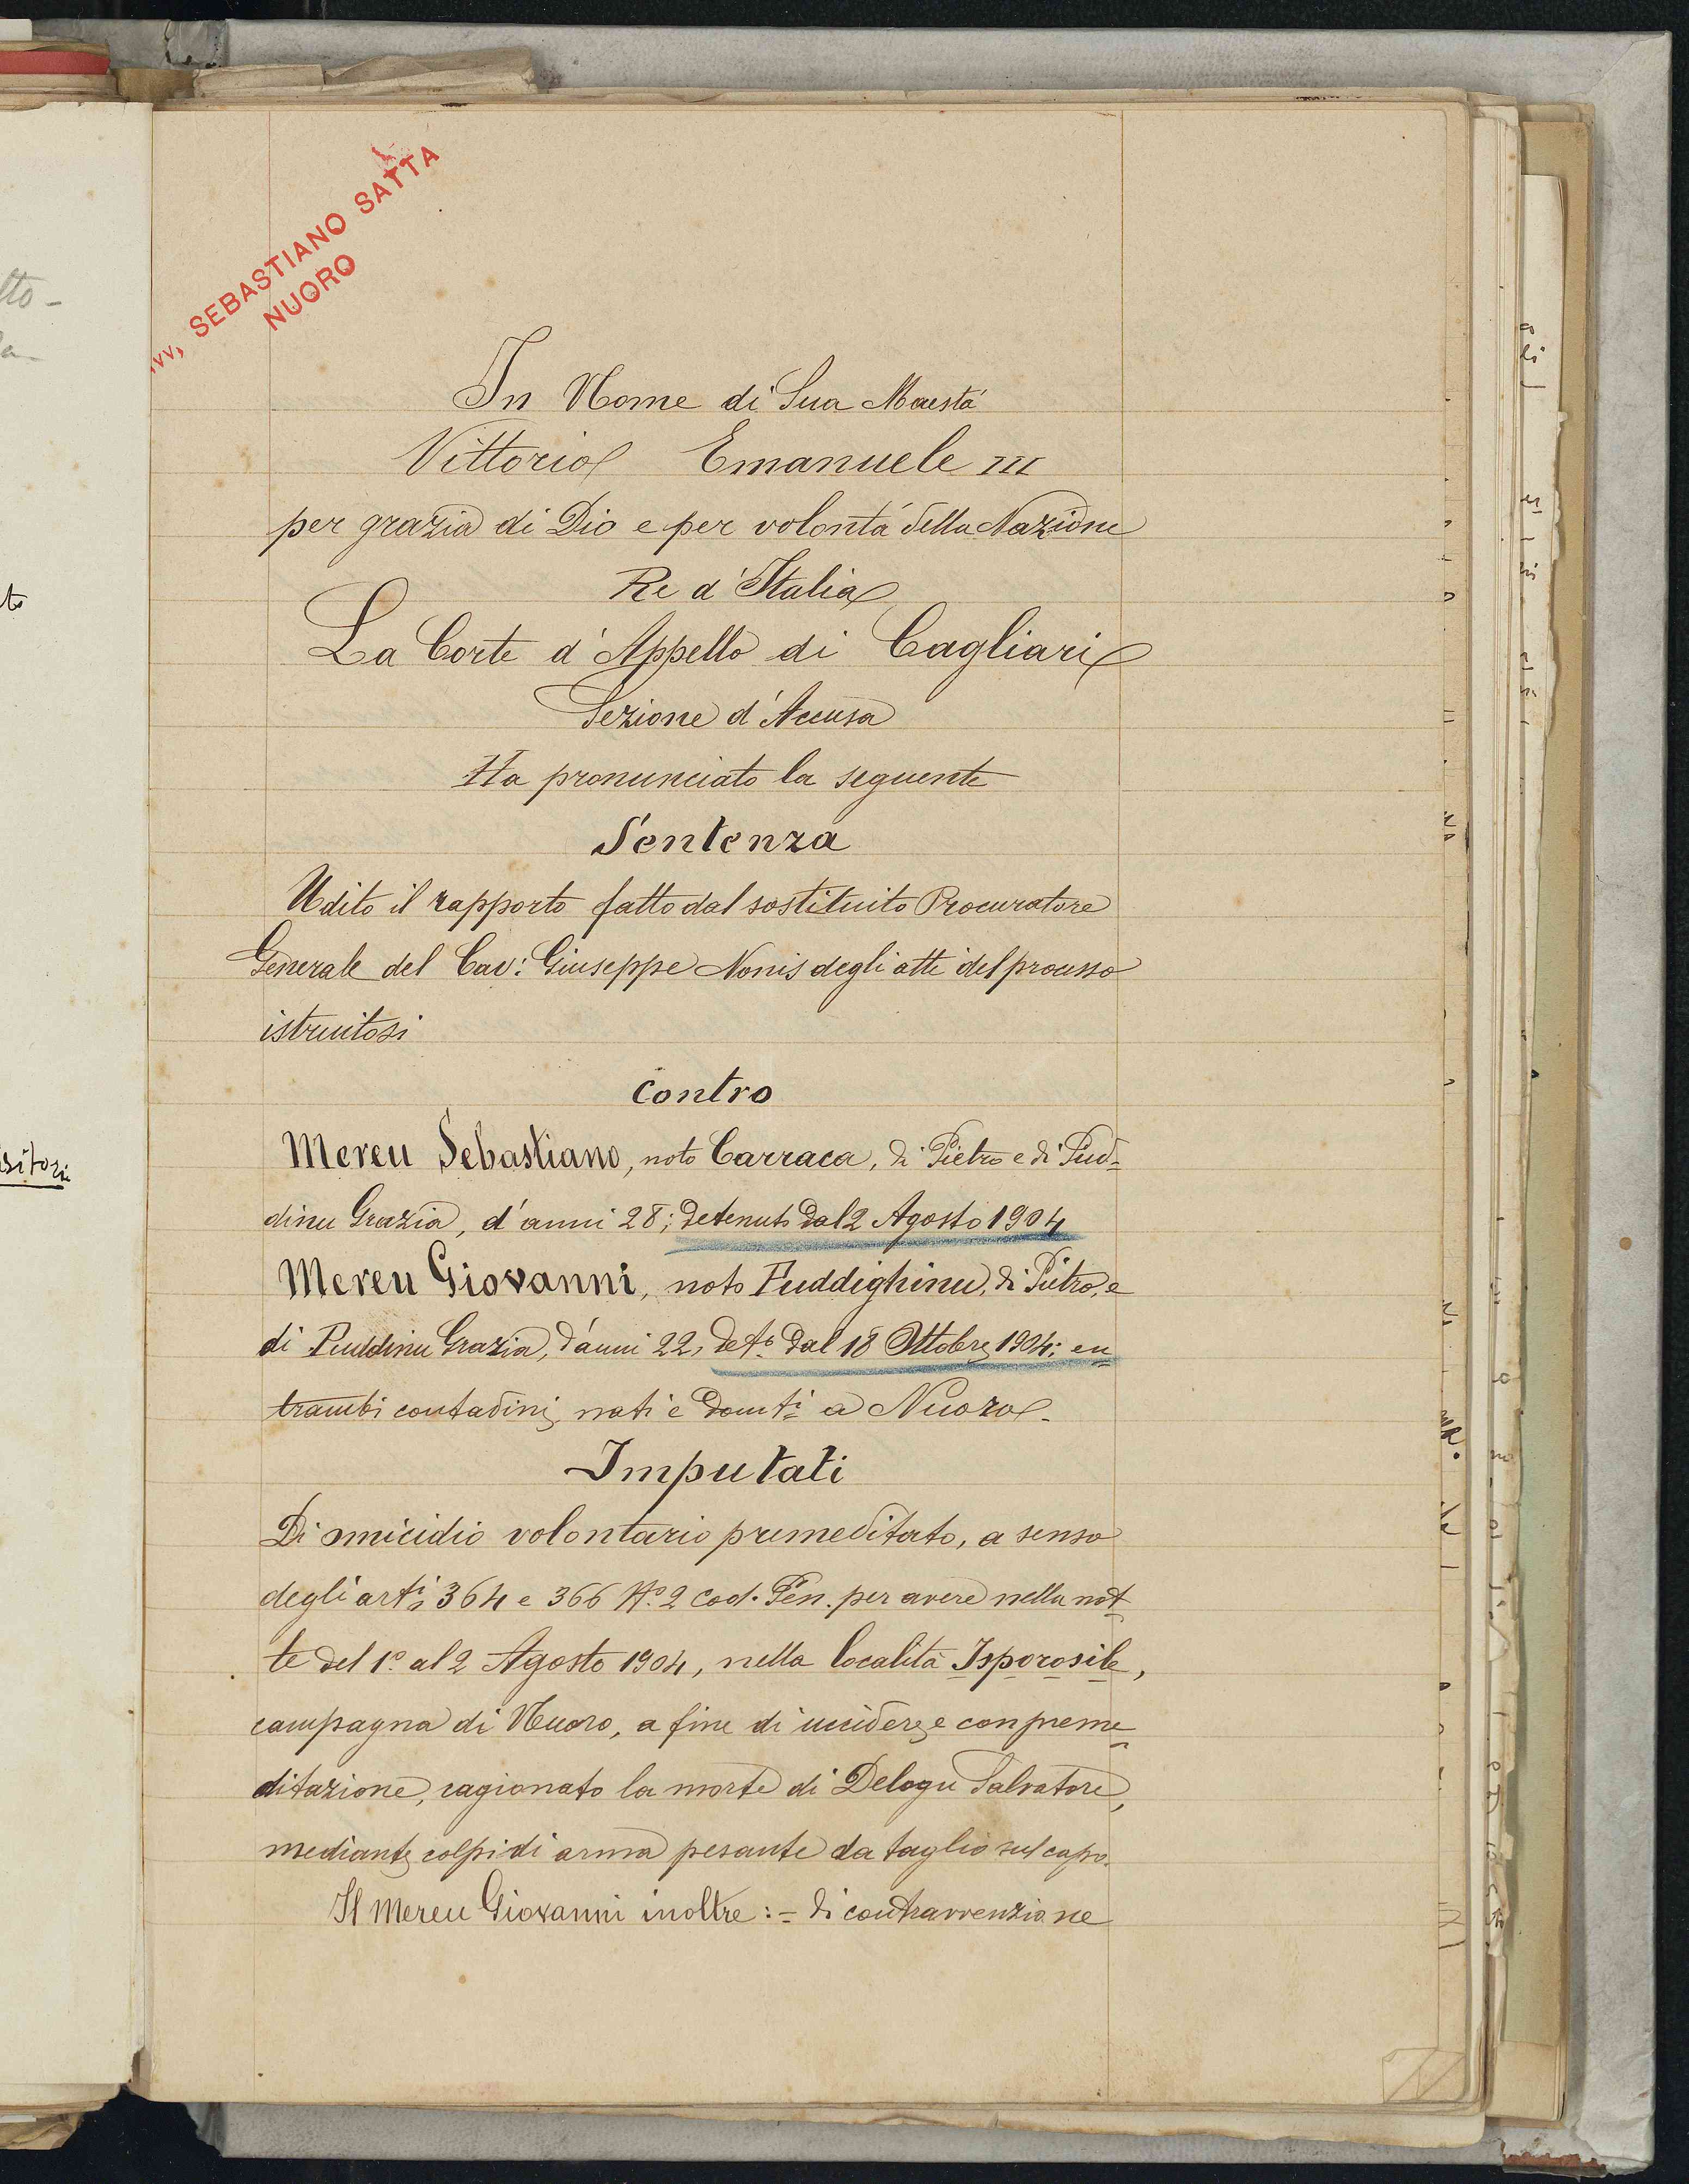 Avv. SEBASTIANO SATTA
NUORO
In Nome di Sua Maestá
Vittorio Emanuele III
per grazia di Dio e per volontá della Nazione
Re d'Italia
La Corte d'Appello di Cagliari
Sezione d'Accusa
Ha pronunciato la seguente
Sentenza
Udito il rapporto fatto dal sostituito Procuratore
Generale del Cav: Giuseppe Nonis degli atti del processo
istruitosi
contro
Mereu Sebastiano, noto Carraca, di Pietro e di Pud-
dinu Grazia, d'anni 28; detenuto dal 2 Agosto 1904
Mereu Giovanni, noto Fuddighinu, di Pietro, e
di Puddinu Grazia, d'anni 22, deto. dal 18 Ottobre 1904; en-
trambi contadini, nati e domti a Nuoro.
Imputati
Di omicidio volontario premeditato, a senso
degli arti. 364 e 366 No. 2 Cod. Pen. per avere nella not-
te del 1o. al 2 Agosto 1904, nella località Isporosile,
campagna di Nuoro, a fine di uccidere, e con preme-
ditazione, cagionato la morte di Delogu Salvatore,
mediante colpi di arma pesante da taglio sul capo.
Il Mereu Giovanni inoltre: - di contravvenzione